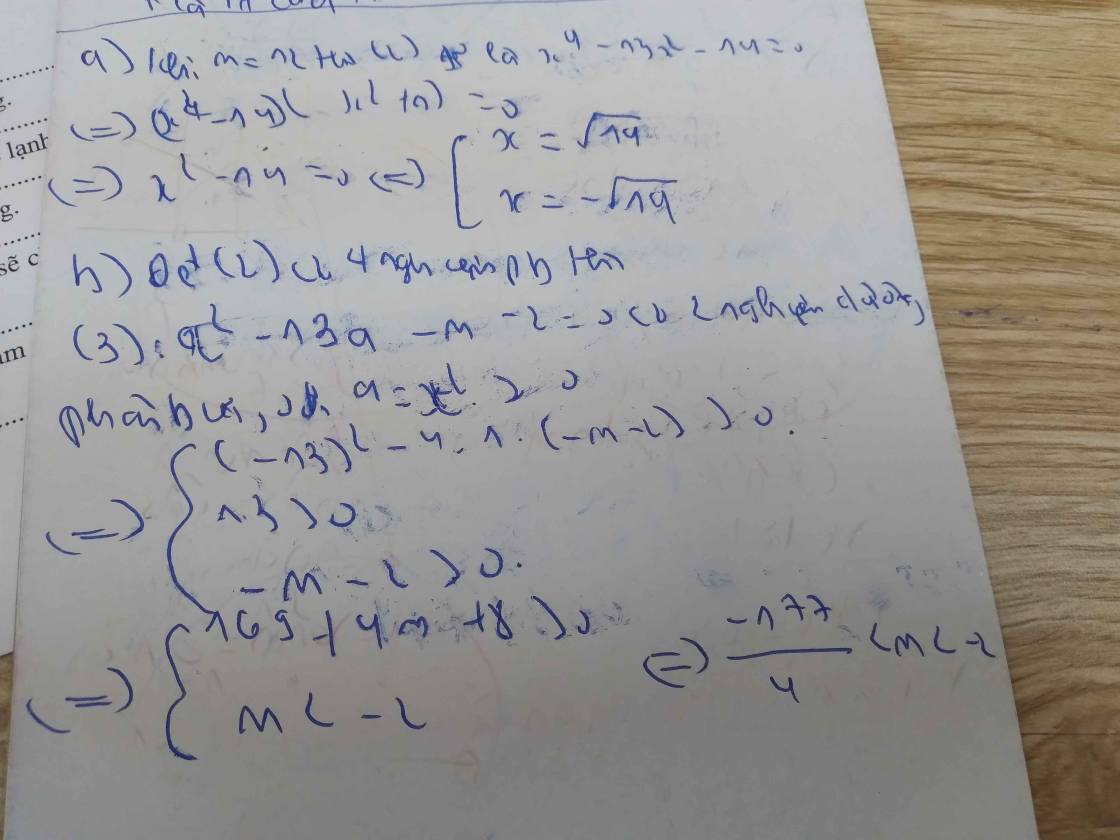 a) Khi m = 12 thì (2) là x⁴ - 13x² - 14 = 0
(=) (x² - 14)(x² + 1) = 0
(=) x² - 14 = 0 (=) [ x = √14
x = -√14
b) Để (2) có 4 nghiệm pb thì
(3): a² - 13a - m - 2 = 0 có 2 nghiệm dương
phân biệt, a = x² > 0
(=) { (-13)² - 4.1.(-m-2) > 0.
13 > 0
-m - 2 > 0.
(=) { 169 + 4m + 8 > 0
m < -2
(=) -177/4 < m < -2
g.
lạnh
g.
sẽ c